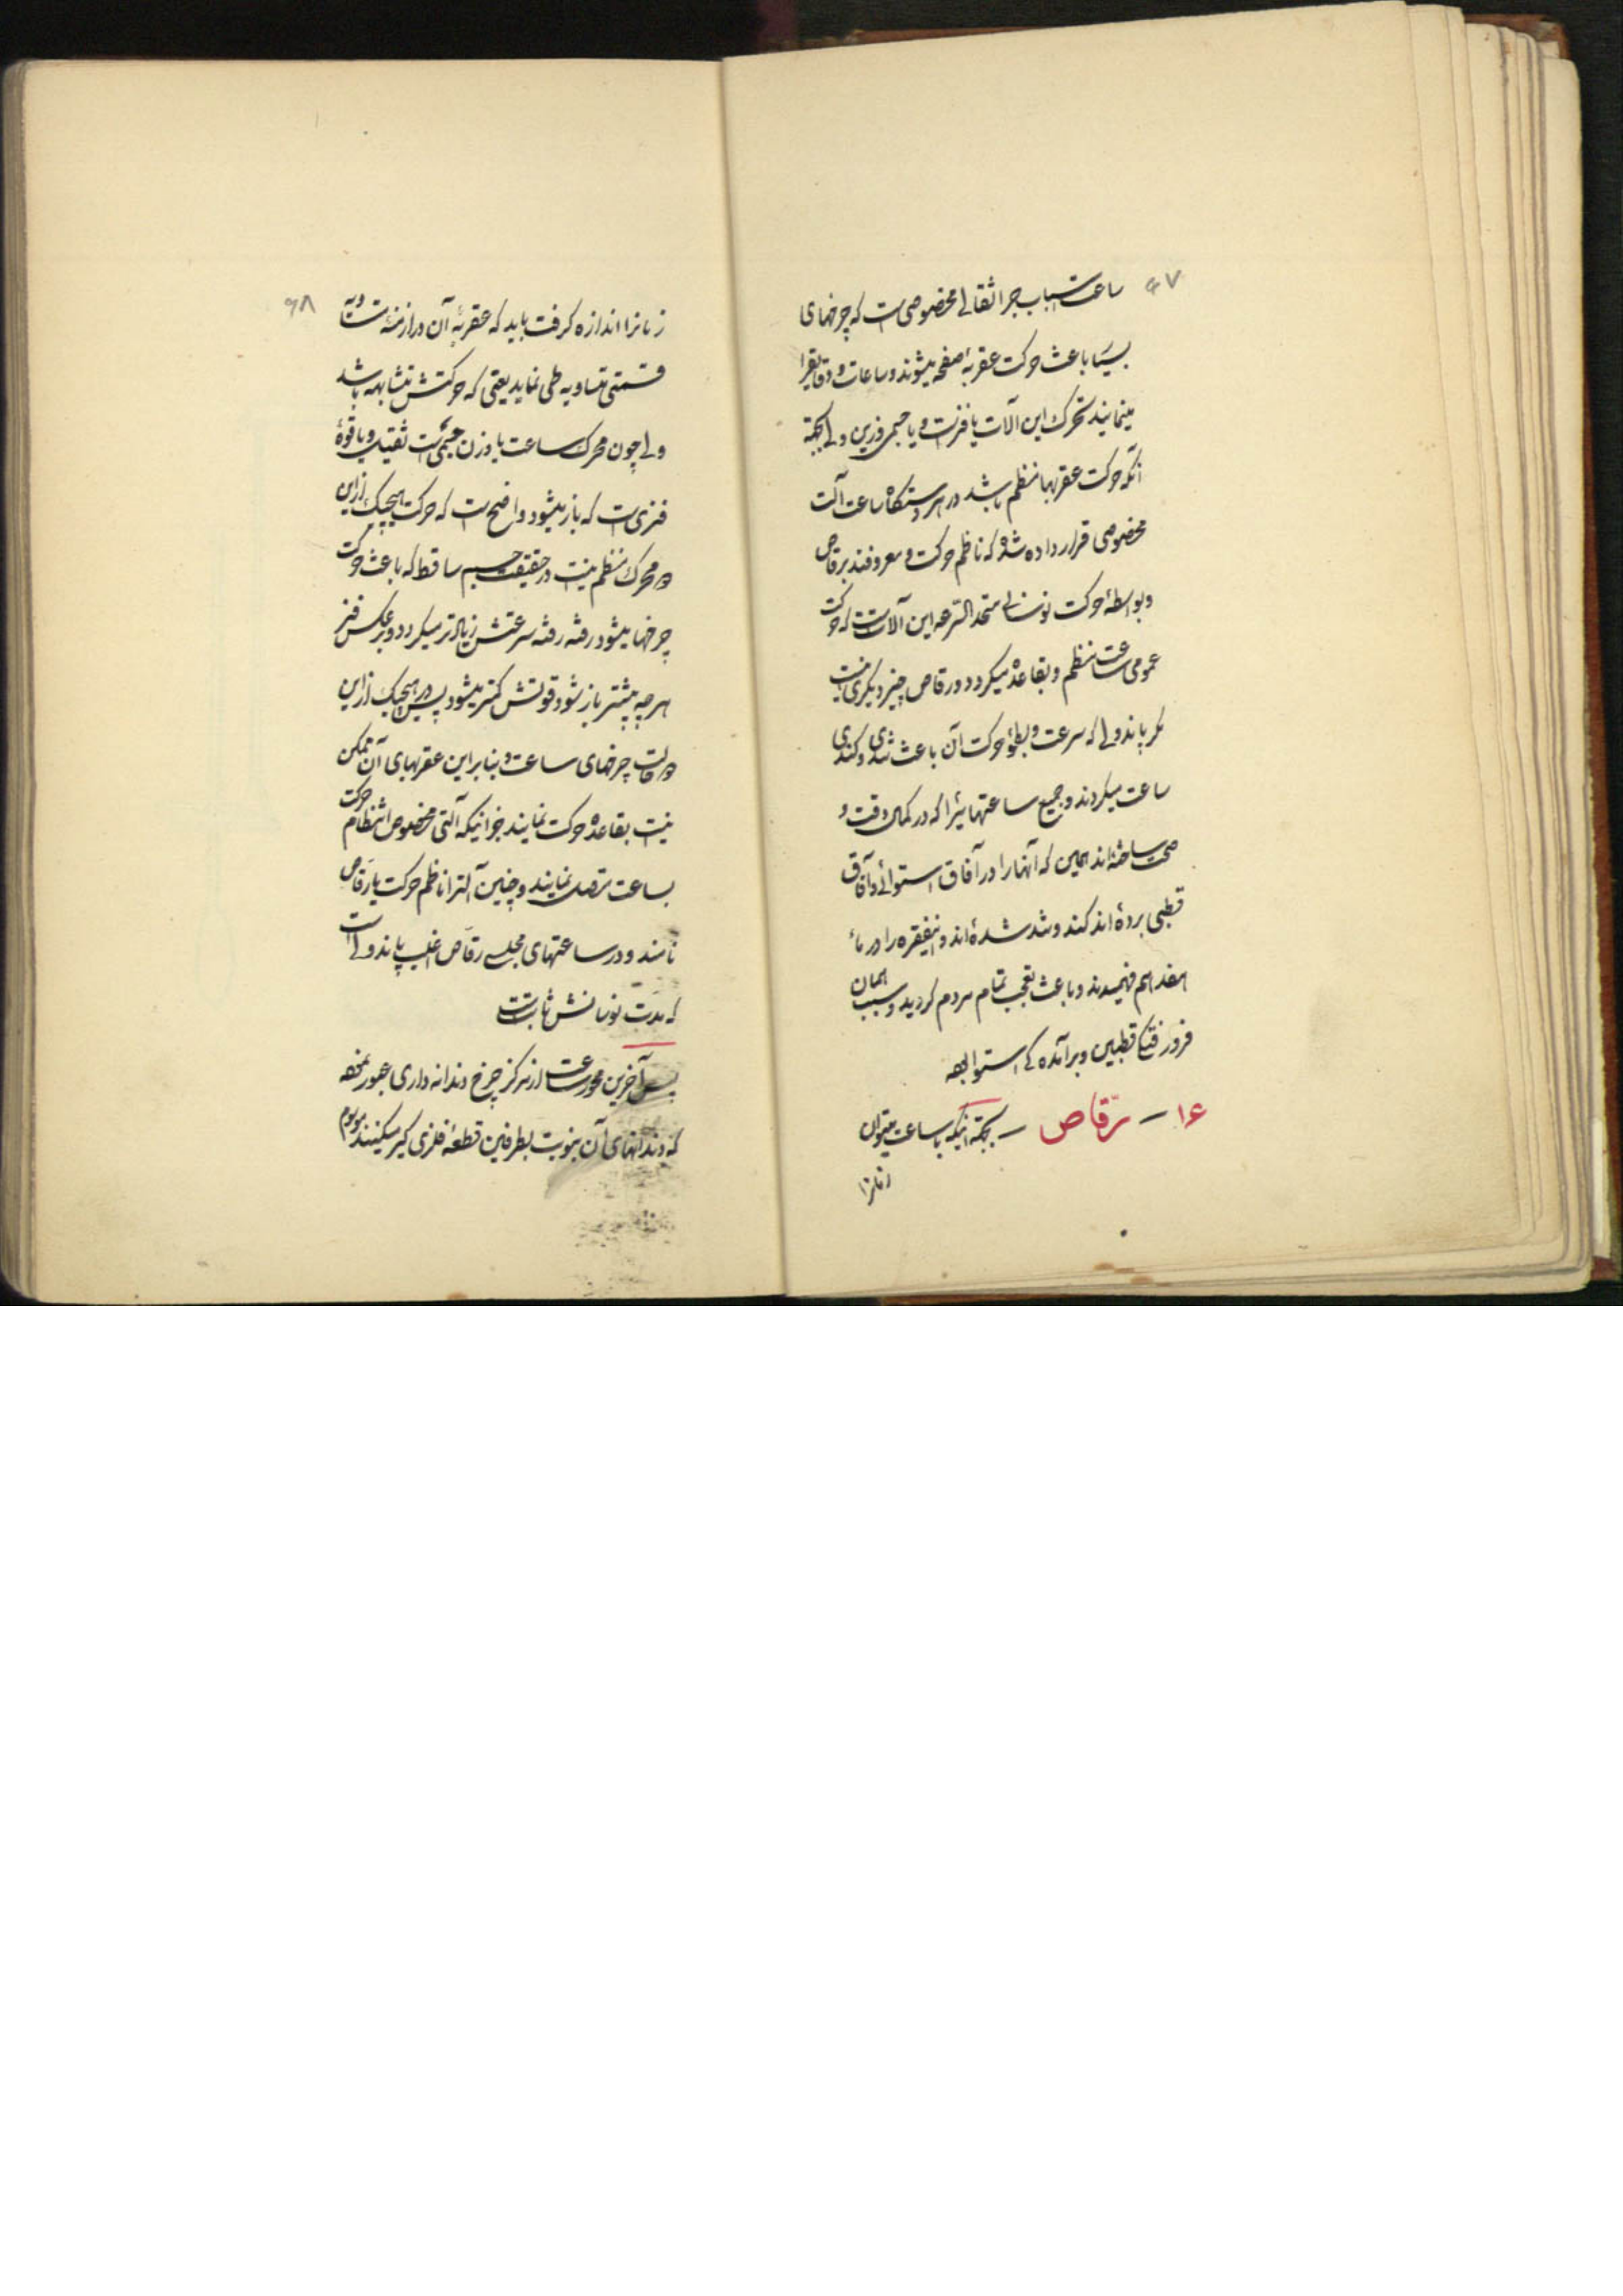 ۶۷
ساعت اسباب جر اثقالی مخصوصی است که چرخهای
بسیار باعث حرکت عقربهٔ صفحه میشوند و ساعات و دقایقرا
مینمایند محرک این آلات یا فنر است و یا جسمی وزین ولی بجهة
آنکه حرکت عقربها منظم باشد در هر دستگاه ساعت آلت
مخصوصی قرار داده شده که ناظم حرکت و معروفند برقاص
و بواسطهٔ حرکت نوسانی متحد السّرعه این آلات است که حرکت
عمومی ساعت منظم و بقاعده میگردد و رقاص چیز دیگری نیست
مگر پاندولی که سرعت و بطؤ حرکت آن باعث تندی و کندی
ساعت میگردند و جمیع ساعتهائیرا که در کمال دقت و
صحت ساخته‌اند همین که آنها را در آفاق استوائی و آفاق
قطبی برده‌اند کند و تند شده‌اند و اینفقره را در مأ
هفدهم فهمیدند و باعث تعجب تمام مردم گردید و سبب همان
فرورفتگی قطبین و برآمده‌گی استوا بوده
۱۶ – رقّاص – بجهة اینکه با ساعت میتوان
زمانرا
۶۸
زمانرا اندازه گرفت باید که عقربهٔ آن در ازمنهٔ متساویه
قسمتی متساویه طی نماید یعنی که حرکتش متشابهه باشد
ولی چون محرک ساعت یا وزن جسمی است ثقیل و یا قوهٔ
فنری است که باز میشود واضح است که حرکت هیچیک از این
دو محرک منظم نیست در حقیقت جسم ساقط که باعث حرکت
چرخها میشود رفته رفته سرعتش زیادتر میگردد و برعکس فنر
هر چه بیشتر باز شود قوتش کمتر میشود پس در هیچیک از این
دو حالت چرخهای ساعت و بنابراین عقربهای آن ممکن
نیست بقاعده حرکت نمایند جز اینکه آلتی مخصوص انتظام حرکت
بساعت متصل نمایند و چنین آلترا ناظم حرکت یا رقاص
نامند و در ساعتهای مجلسی رقاص اغلب پاندولی است
که مدت نوسانش ثابت است
پس آخرین محور ساعت از مرکز چرخ دندانه داری عبور نموده
که دندانهای آن بنوبت بطرفین قطعهٔ فلزی گیر میکنند موسوم